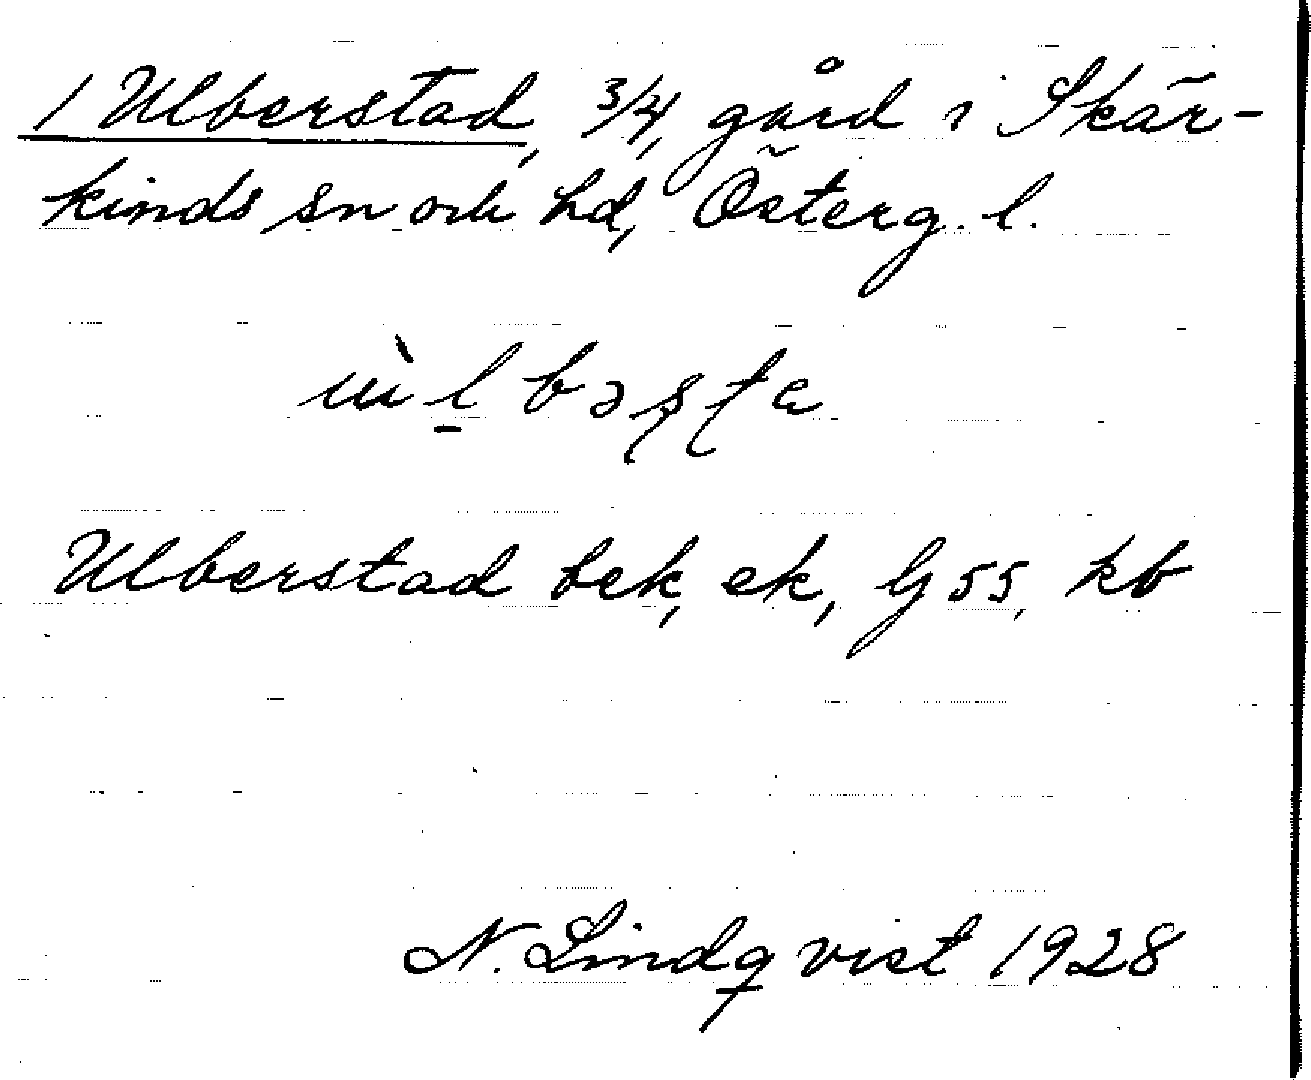 1 Ulberstad, 3/4, gård i Skär-
kinds sn och hd, Österg. l.
Ulberstad bek, ek, G 55, kb
N. Lindqvist 1928